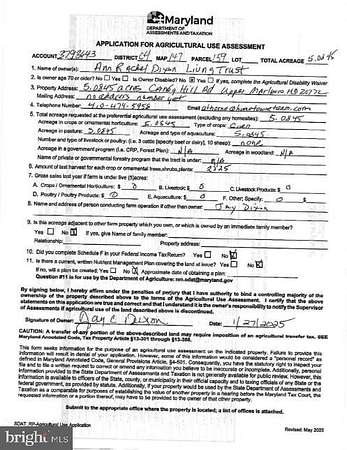 Maryland
DEPARTMENT OF
ASSESSMENTS AND TAXATION
APPLICATION FOR AGRICULTURAL USE ASSESSMENT
ACCOUNT 3793643 DISTRICT 04 MAP 147 PARCEL 159 LOT TOTAL ACREAGE 5.0845
1. Name of owner(s): Ann Rachel Dixon Living Trust
2. Is owner age 70 or older? No Yes Is Owner Disabled? No Yes If yes, complete the Agricultural Disability Waiver
3. Property Address: 5.0845 acres Candy Hill Rd Upper Marlboro MD 20772
Mailing Address: no address number yet
4. Telephone Number: 410-474-5456
5. Total acreage requested at the preferential agricultural use assessment (excluding any homesites): 5.0845
Acreage in crops or ornamental horticulture: 5.0845 Type of crops:
Acreage in pasture: 5.0845 Acreage and type of aquaculture: 5.0845
Number and type of livestock or poultry: (i.e. 3 cattle (specify type), 10 sheep) none
Acreage in government program (i.e. CRP, Forest Plan) N/A Acreage in woodland: N/A
Name of private or governmental forestry program that the tract is under: n/a
6. Amount of last harvest for each crop or ornamental trees, shrubs, plants:
7. Gross sales last year if farm to under five (5) acres:
A. Crops / Ornamental Horticulture: $ 0 B. Livestock: $ 0 C. Livestock Products: $ 0
D. Poultry / Poultry Products: $ 0 E. Aquaculture: $ 0 F. Other; Specify: 0 $
8. Name and address of person conducting farm operation if other than owner: Jay Dixon
9. Is this acreage adjacent to other farm property which you own, or which is owned by an immediate family member?
Yes No If yes, give Name of family member:
Relationship: Property address:
10. Did you complete Schedule F in your Federal Income Tax Return? Yes No
11. Is there a current, written Nutrient Management Plan covering the land of lease? Yes No
If no, will a plan be created; Yes No Approximate date of obtaining a plan:
Question #11 is for use by the Department of Agriculture: 
By signing below, I hereby affirm under the penalties of perjury that I have authority to bind a controlling majority of the
ownership of the property described above to the terms of the Agricultural Use Assessment. I certify that the above
statements on this application are true and correct and that I understand it is the owner's responsibility to notify the Supervisor
of Assessments if agricultural use of the land described discontinued.
Signature of Owner Jay R Dixon Date 1/27/2025
CAUTION: A transfer of any portion of the above-described land may require imposition of an agricultural transfer tax. SEE
Maryland Annotated Code, Tax Property §13-301 through §13-308.
This form seeks information for the purpose of an agricultural use assessment on the indicated property. Failure to provide this
information will result in denial of your application. However, some of this information would be considered a "personal record" as
defined in Maryland Annotated Code, General Provisions Article, §4-501. Consequently, you have the statutory right to inspect your
file and to file a written request to correct or amend any information you believe to be inaccurate or incomplete. Additionally, personal
information provided to the State Department of Assessments and Taxation is not generally available for public review. However, this
information is available to officers of the State, county, or municipality in their official capacity and to taxing officials of any State or the
federal government, as provided by statute. Additionally, if your property would be used by the State Department of Assessments and
Taxation as a comparable for purposes of establishing the value of another property in a hearing before the Maryland Tax Court, the
requested information or a portion thereof, may have to be provided to the owner of that other property.
Submit to the appropriate office where the property is located; a list of offices is attached.
SDAT_RP-Agricultural Use Application Revised: May 2023
BRIGHT MLS